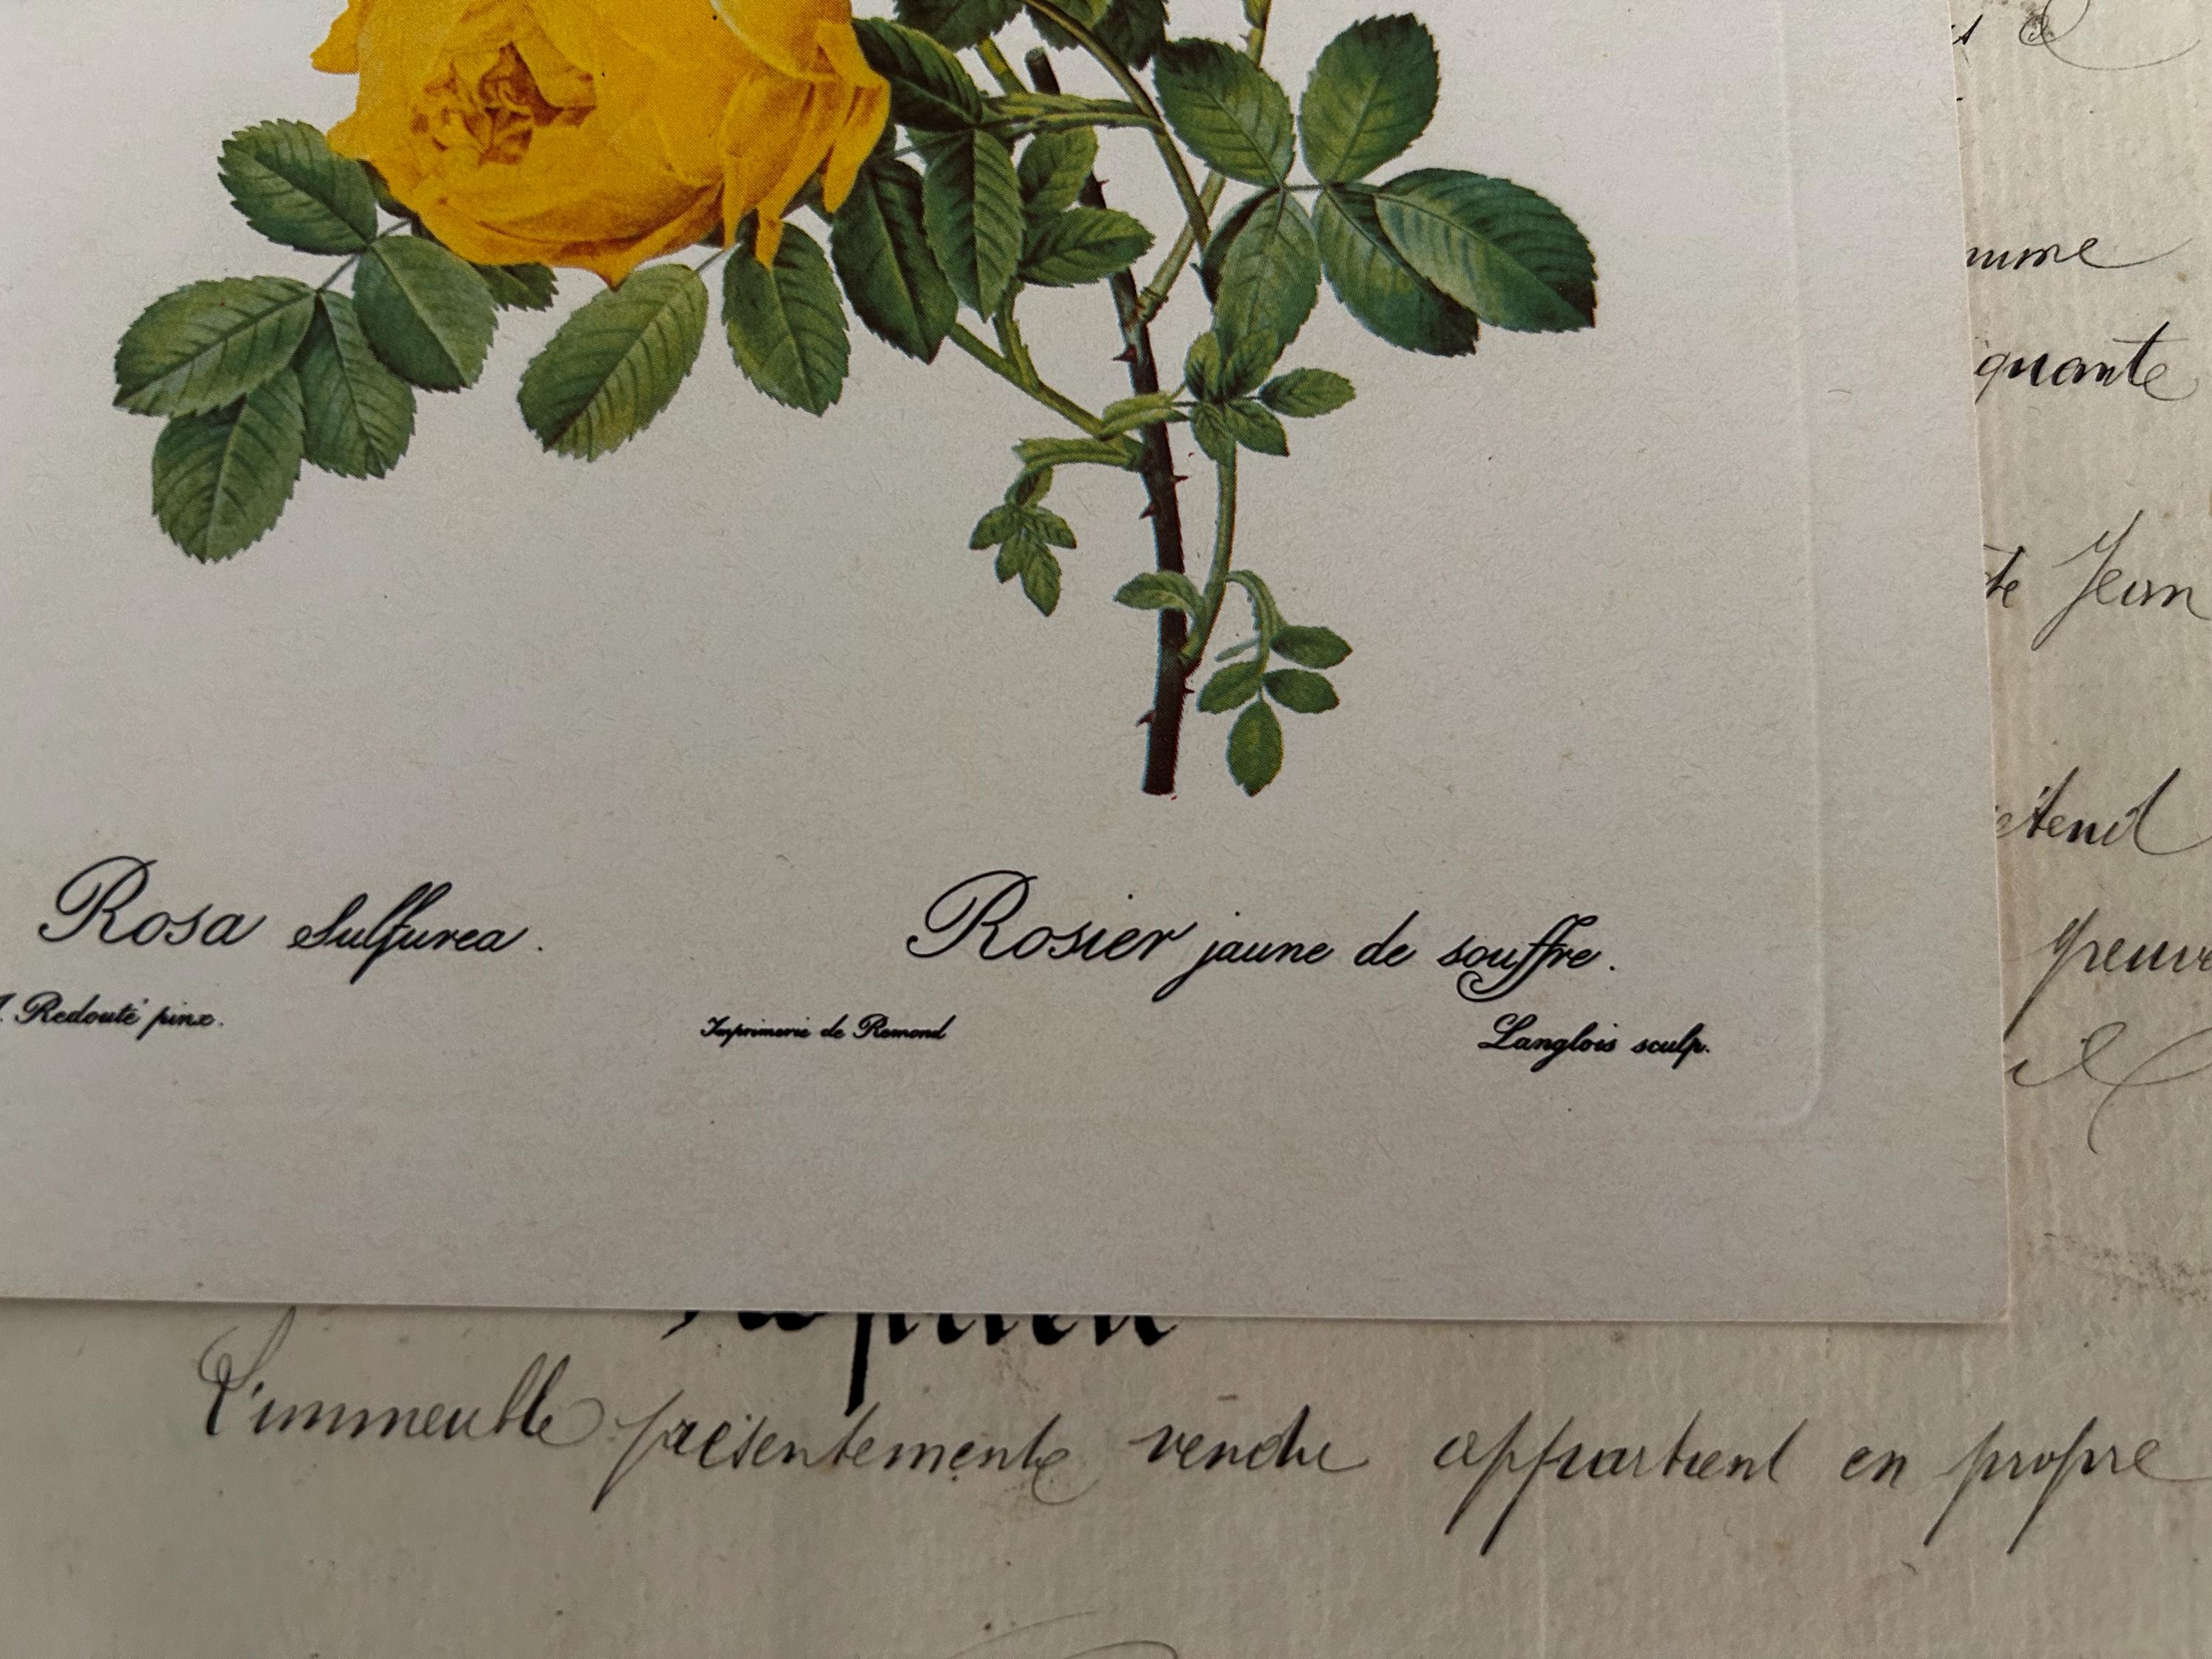 Rosa Sulfurea.
Rosier jaune de souffre.
Redouté pinx.
Imprimerie de Remond
Langlois sculp.
quante
Jean
L'immeuble présentement vendu appartient en propre